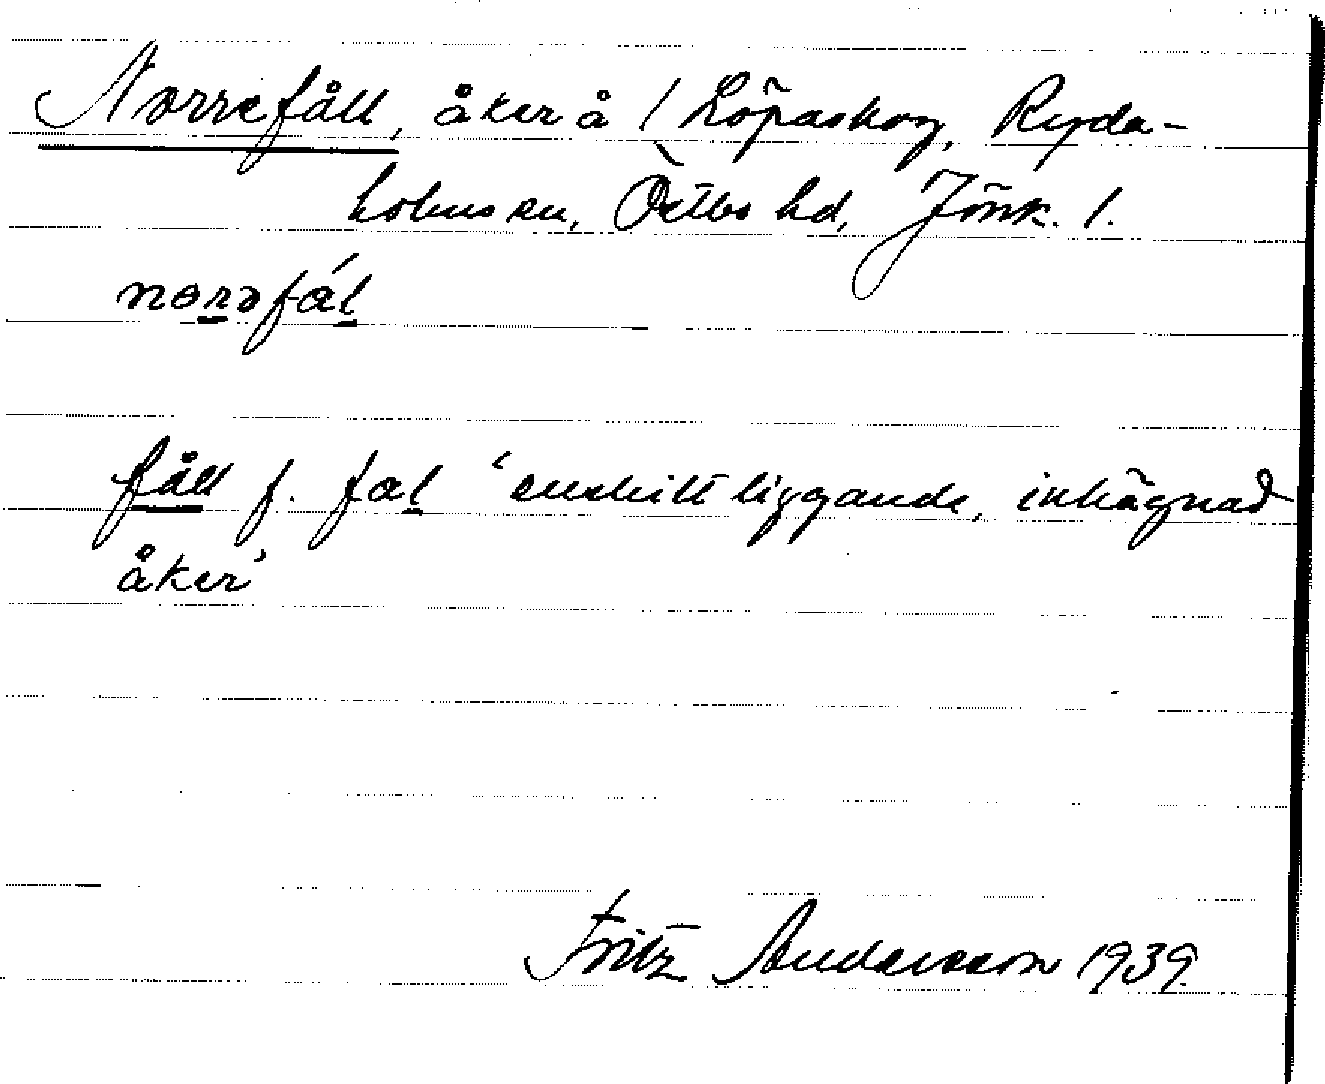 Norrefåll, åker å 1 Löpaskog, Ryda-
holms sn, Östbo hd, Jönk. l.
nɵrəfál
fåll f. fal ‘enskilt liggande, inhägnad
åker’
Fritz Andersson 1939.